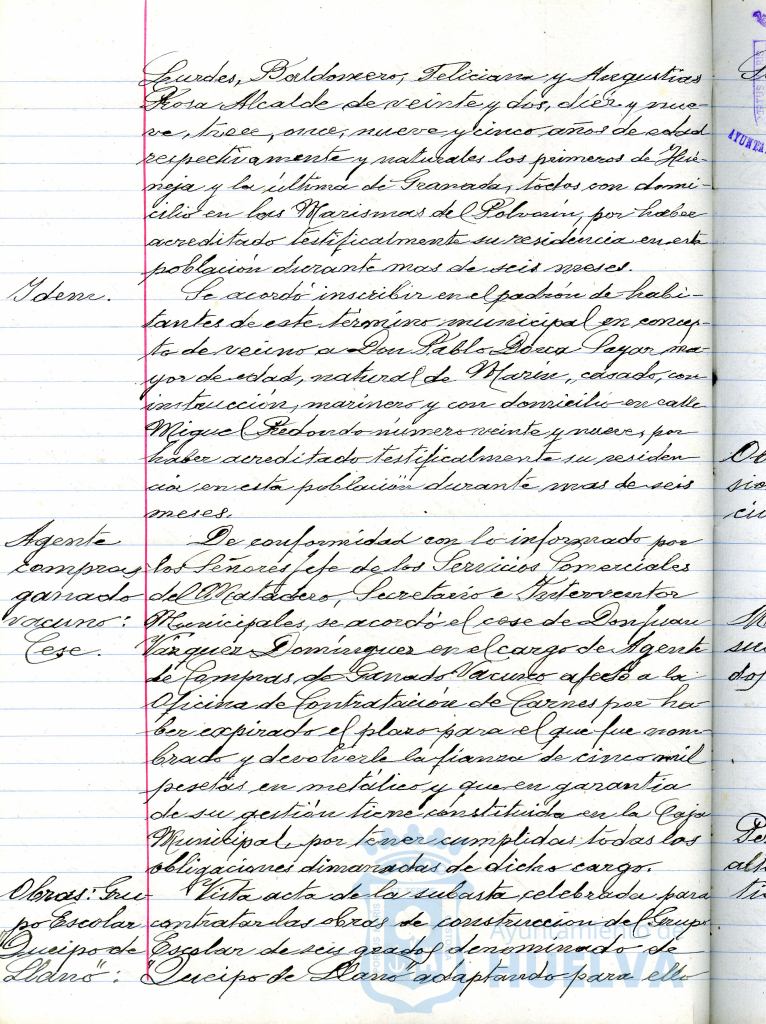 Lourdes, Baldomero, Feliciana y Angustias
Rosa Alcalde de veinte y dos, diez y nue-
ve, trece, once, nueve y cinco años de edad
respectivamente y naturales los primeros de Hué-
neja y la última de Granada, todos con domi-
cilio en las Marismas del Polvorín, por haber
acreditado testificalmente su residencia en esta
población durante mas de seis meses.
Idem.
Se acordó inscribir en el padrón de habi-
tantes de este término municipal en concep-
to de vecino a Don Pablo Dorca Sayar ma-
yor de edad, natural de Marín, casado, con
instrucción, marinero y con domicilio en calle
Miguel Redondo número veinte y nueve, por
haber acreditado testificalmente su residen-
cia en esta población durante mas de seis
meses.
Agente
compras
ganado
vacuno:
Cese.
De conformidad con lo informado por
los Señores Jefe de los Servicios Comerciales
del Matadero, Secretario e Interventor
Municipales, se acordó el cese de Don Juan
Vázquez Domínguez en el cargo de Agente
de Compras de Ganado Vacuno afecto a la
Oficina de Contratación de Carnes por ha
ber expirado el plazo para el que fue nom-
brado y devolverle la fianza de cinco mil
pesetas en metálico y que en garantia
de su gestión tiene constituida en la Caja
Municipal, por tener cumplidas todas las
obligaciones dimanadas de dicho cargo.
Obras: Gru
po Escolar
"Queipo de
Llano":
Vista acta de la subasta celebrada para
contratar las obras de construccion del Grupo
Escolar de seis grados denominado de
"Queipo de Llano" adaptando para ello
Ayuntamiento de
HUELVA